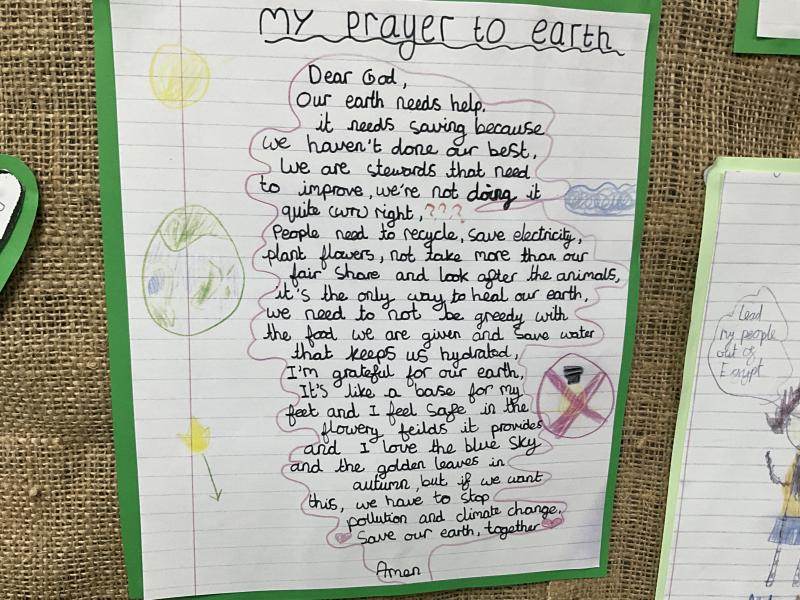 My prayer to earth
Dear God,
Our earth needs help.
it needs saving because
we haven't done our best.
We are stewards that need
to improve, we're not doing it
quite (WTR) right, ???
People need to recycle, save electricity,
plant flowers, not take more than our
fair share and look after the animals,
it's the only way to heal our earth,
we need to not be greedy with
the food we are given and save water
that keeps us hydrated,
I'm grateful for our earth,
It's like a base for my
feet and I feel safe in the
flowery feilds it provides
and I love the blue sky
and the golden leaves in
autumn, but if we want
this, we have to stop
pollution and climate change.
Save our earth, together
Amen
Lead
my people
out of
Egypt